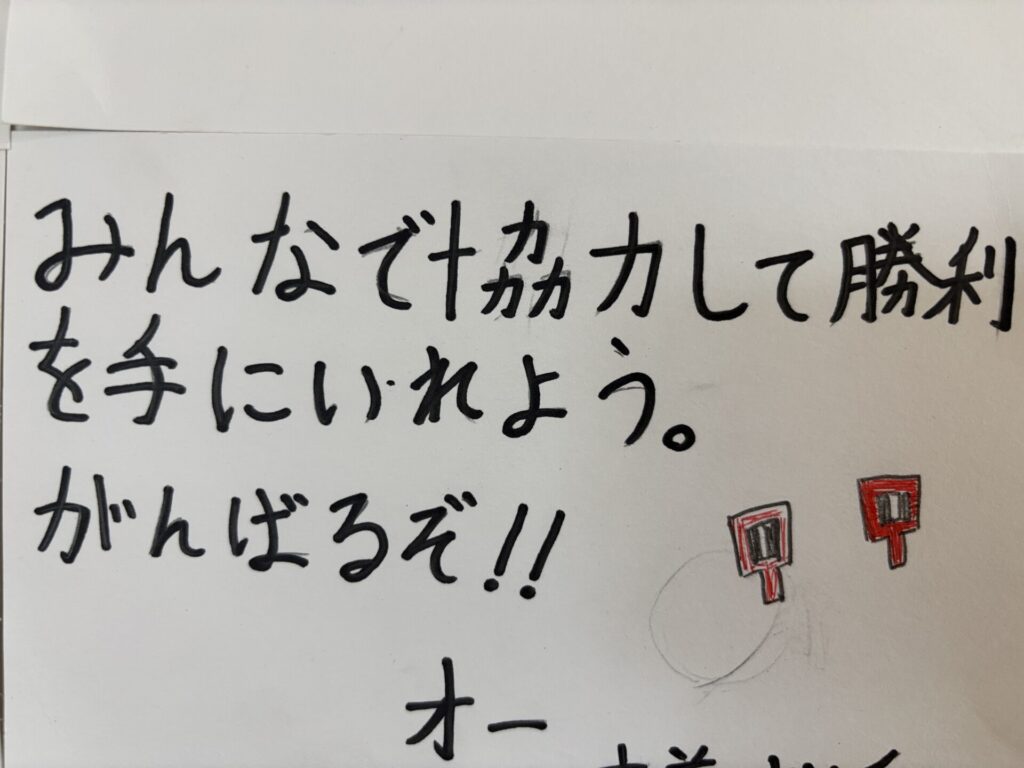 みんなで協力して勝利
を手にいれよう。
がんばるぞ!!
オー